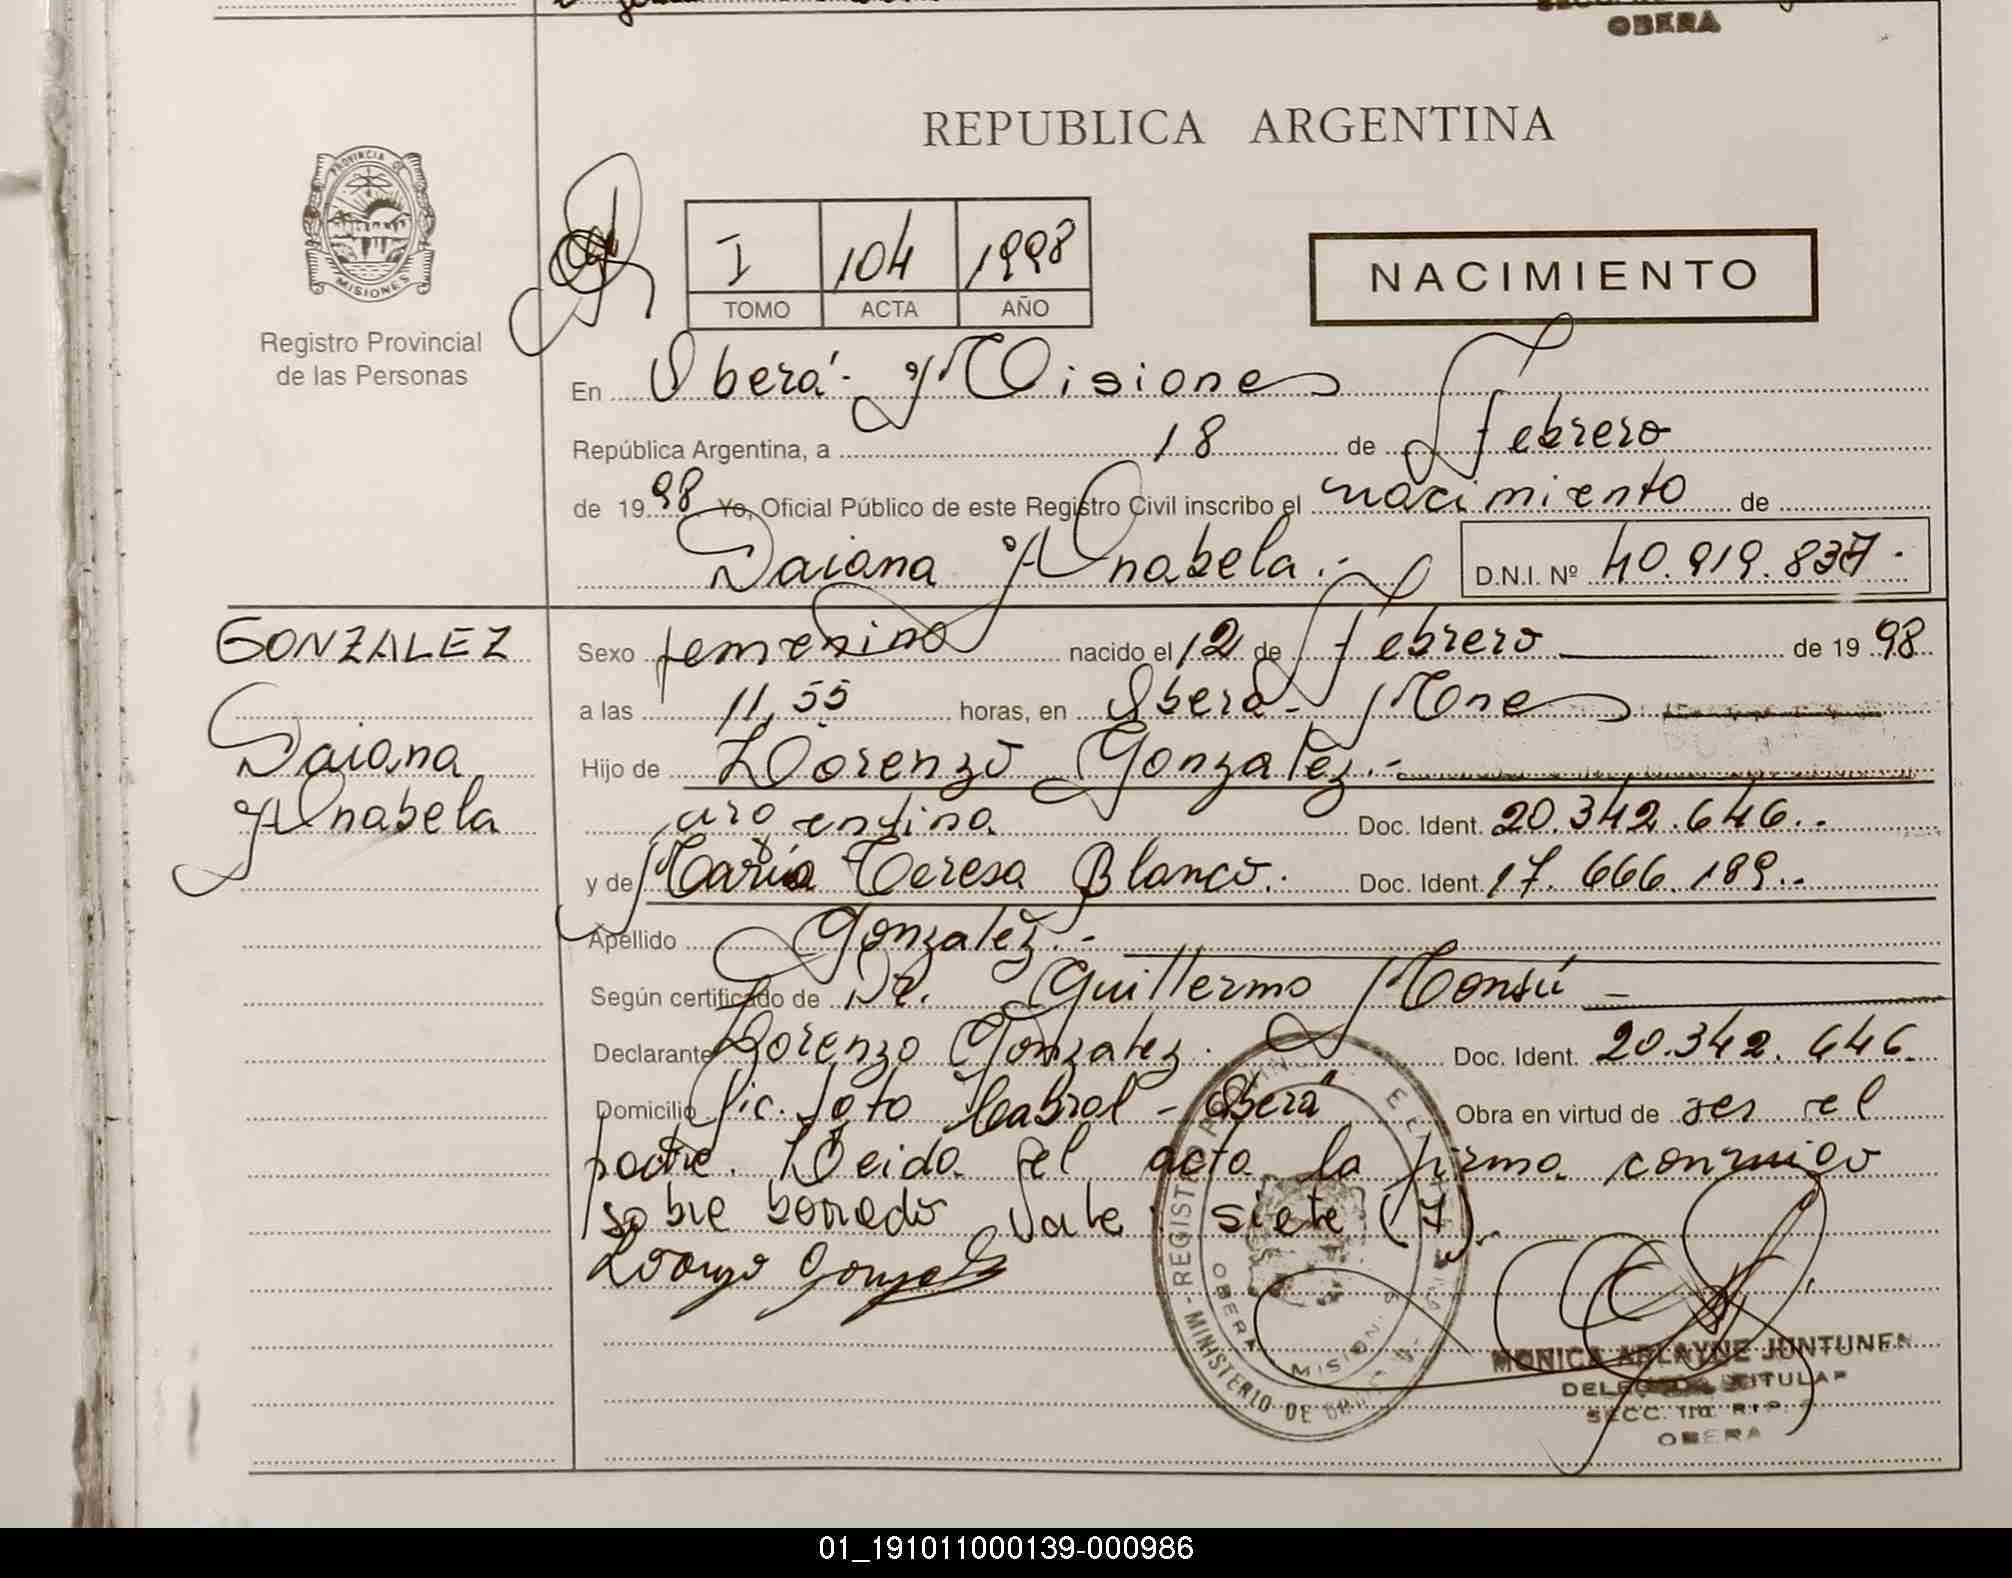 OBERA
REPUBLICA ARGENTINA
PROVINCIA DE
MISIONES
Registro Provincial
de las Personas
I 104 1998
TOMO ACTA AÑO
NACIMIENTO
En Oberá - Misiones
República Argentina, a 18 de Febrero
de 1998 Yo, Oficial Público de este Registro Civil inscribo el nacimiento de
Daiana Anabela.- D.N.I. Nº 40.919.837.
GONZALEZ
Daiana
Anabela
Sexo femenino nacido el 12 de Febrero de 1998
a las 11,55 horas, en Oberá - Mnes
Hijo de Lorenzo Gonzalez.-
argentina Doc. Ident. 20.342.646..
y de María Teresa Blanco. Doc. Ident. 17.666.189..
Apellido Gonzalez.-
Según certificado de Dr. Guillermo Monsú -
Declarante Lorenzo Gonzalez. Doc. Ident. 20.342.646.
Domicilio Pic. Soto Cabral - Oberá Obra en virtud de ser el
padre. Leida el acta la firma conmigo
sobre borrado Vale: siete (7).
Lorenzo Gonzalez
REGISTRO
MINISTERIO DE
OBERA MISIONES
MONICA ARLAYNE JUNTUNEN
TITULAR
SECC.
OBERA
01_191011000139-000986